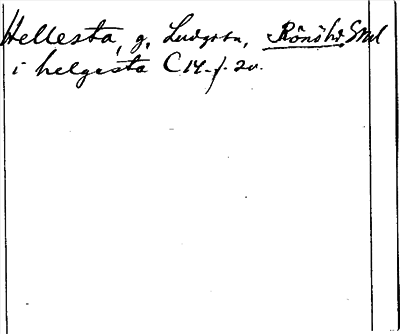 Hellesta, g, Ludgo sn, Rönö hd Sml
i helgesta C 14 f. 20.